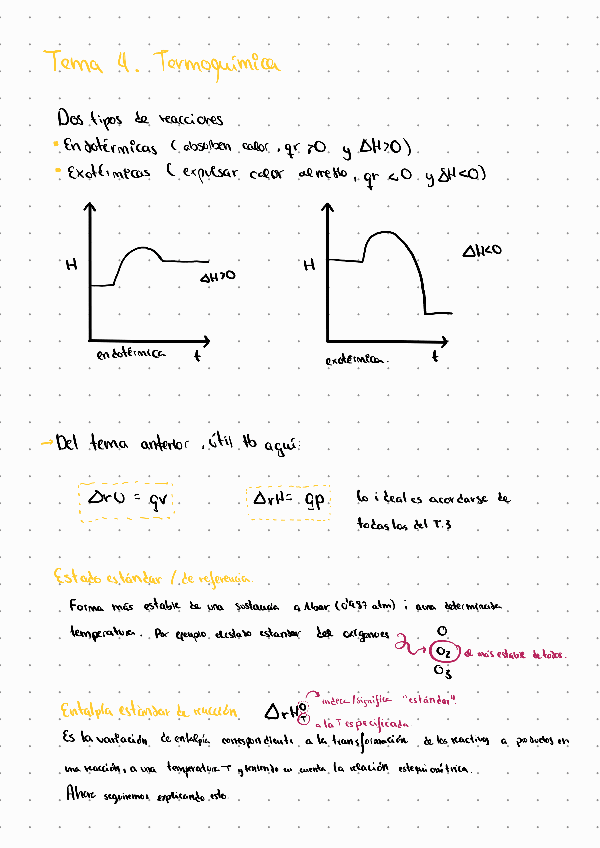 Tema 4. Termoquímica
Dos tipos de reacciones
• Endotérmicas ( absorben calor, qr >0 y ΔH>0)
• Exotérmicas ( expulsar calor al medio, qr <0 y ΔH<0)
H
ΔH>0
endotérmica t
H
ΔH<0
exotérmica. t
→ Del tema anterior, útil tb aquí:
ΔrU = qv
ΔrH= qp
lo ideal es acordarse de
todas las del T.3
Estado estándar / de referencia.
Forma más estable de una sustancia a 1bar (0'987 atm) i a una determinada
temperatura. Por ejemplo, el estado estandar del oxígeno es
O
O2
O3
el más estable de todos.
Entalpía estándar de reacción
ΔrH°T
índice /significa "estándar".
a la T especificada
Es la variación de entalpía correspondiente a la transformación de los reactivos a productos en
una reacción, a una temperatura T y teniendo en cuenta la relación estequiométrica.
Ahora seguiremos explicando esto.